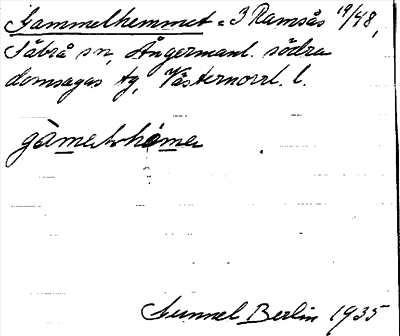 Gammelhemmet = 3 Ramsås 19/48,
Säbrå sn, Ångermanl. södra
domsagas tg, Västernorrl. l.
Gunnel Berlin 1935